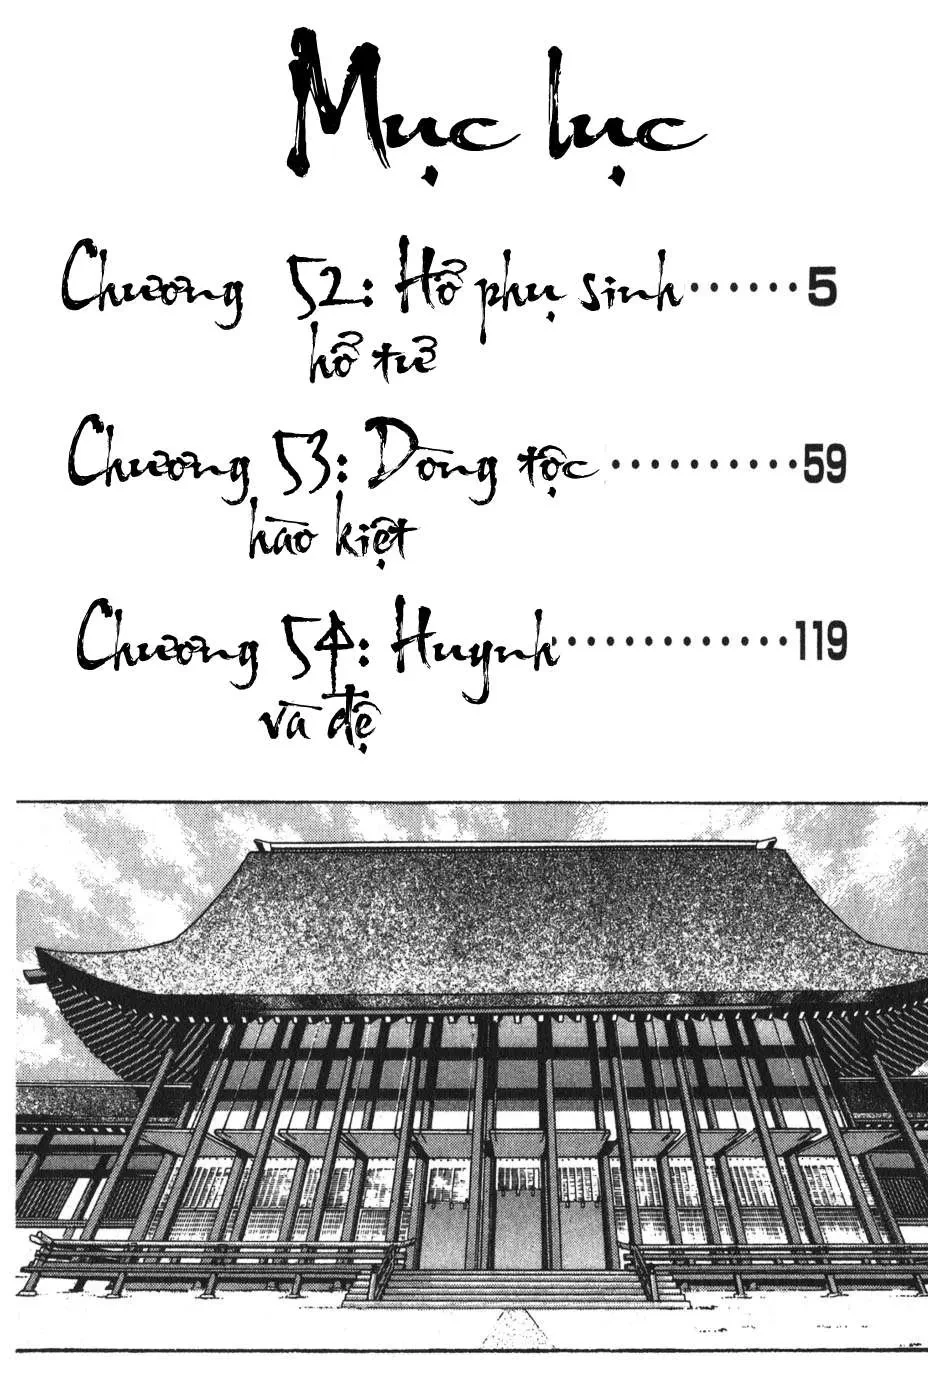 Mục lục
Chương 52: Hổ phụ sinh······5
hổ tử
Chương 53: Dòng tộc··········59
hào kiệt
Chương 54: Huynh·············119
và đệ